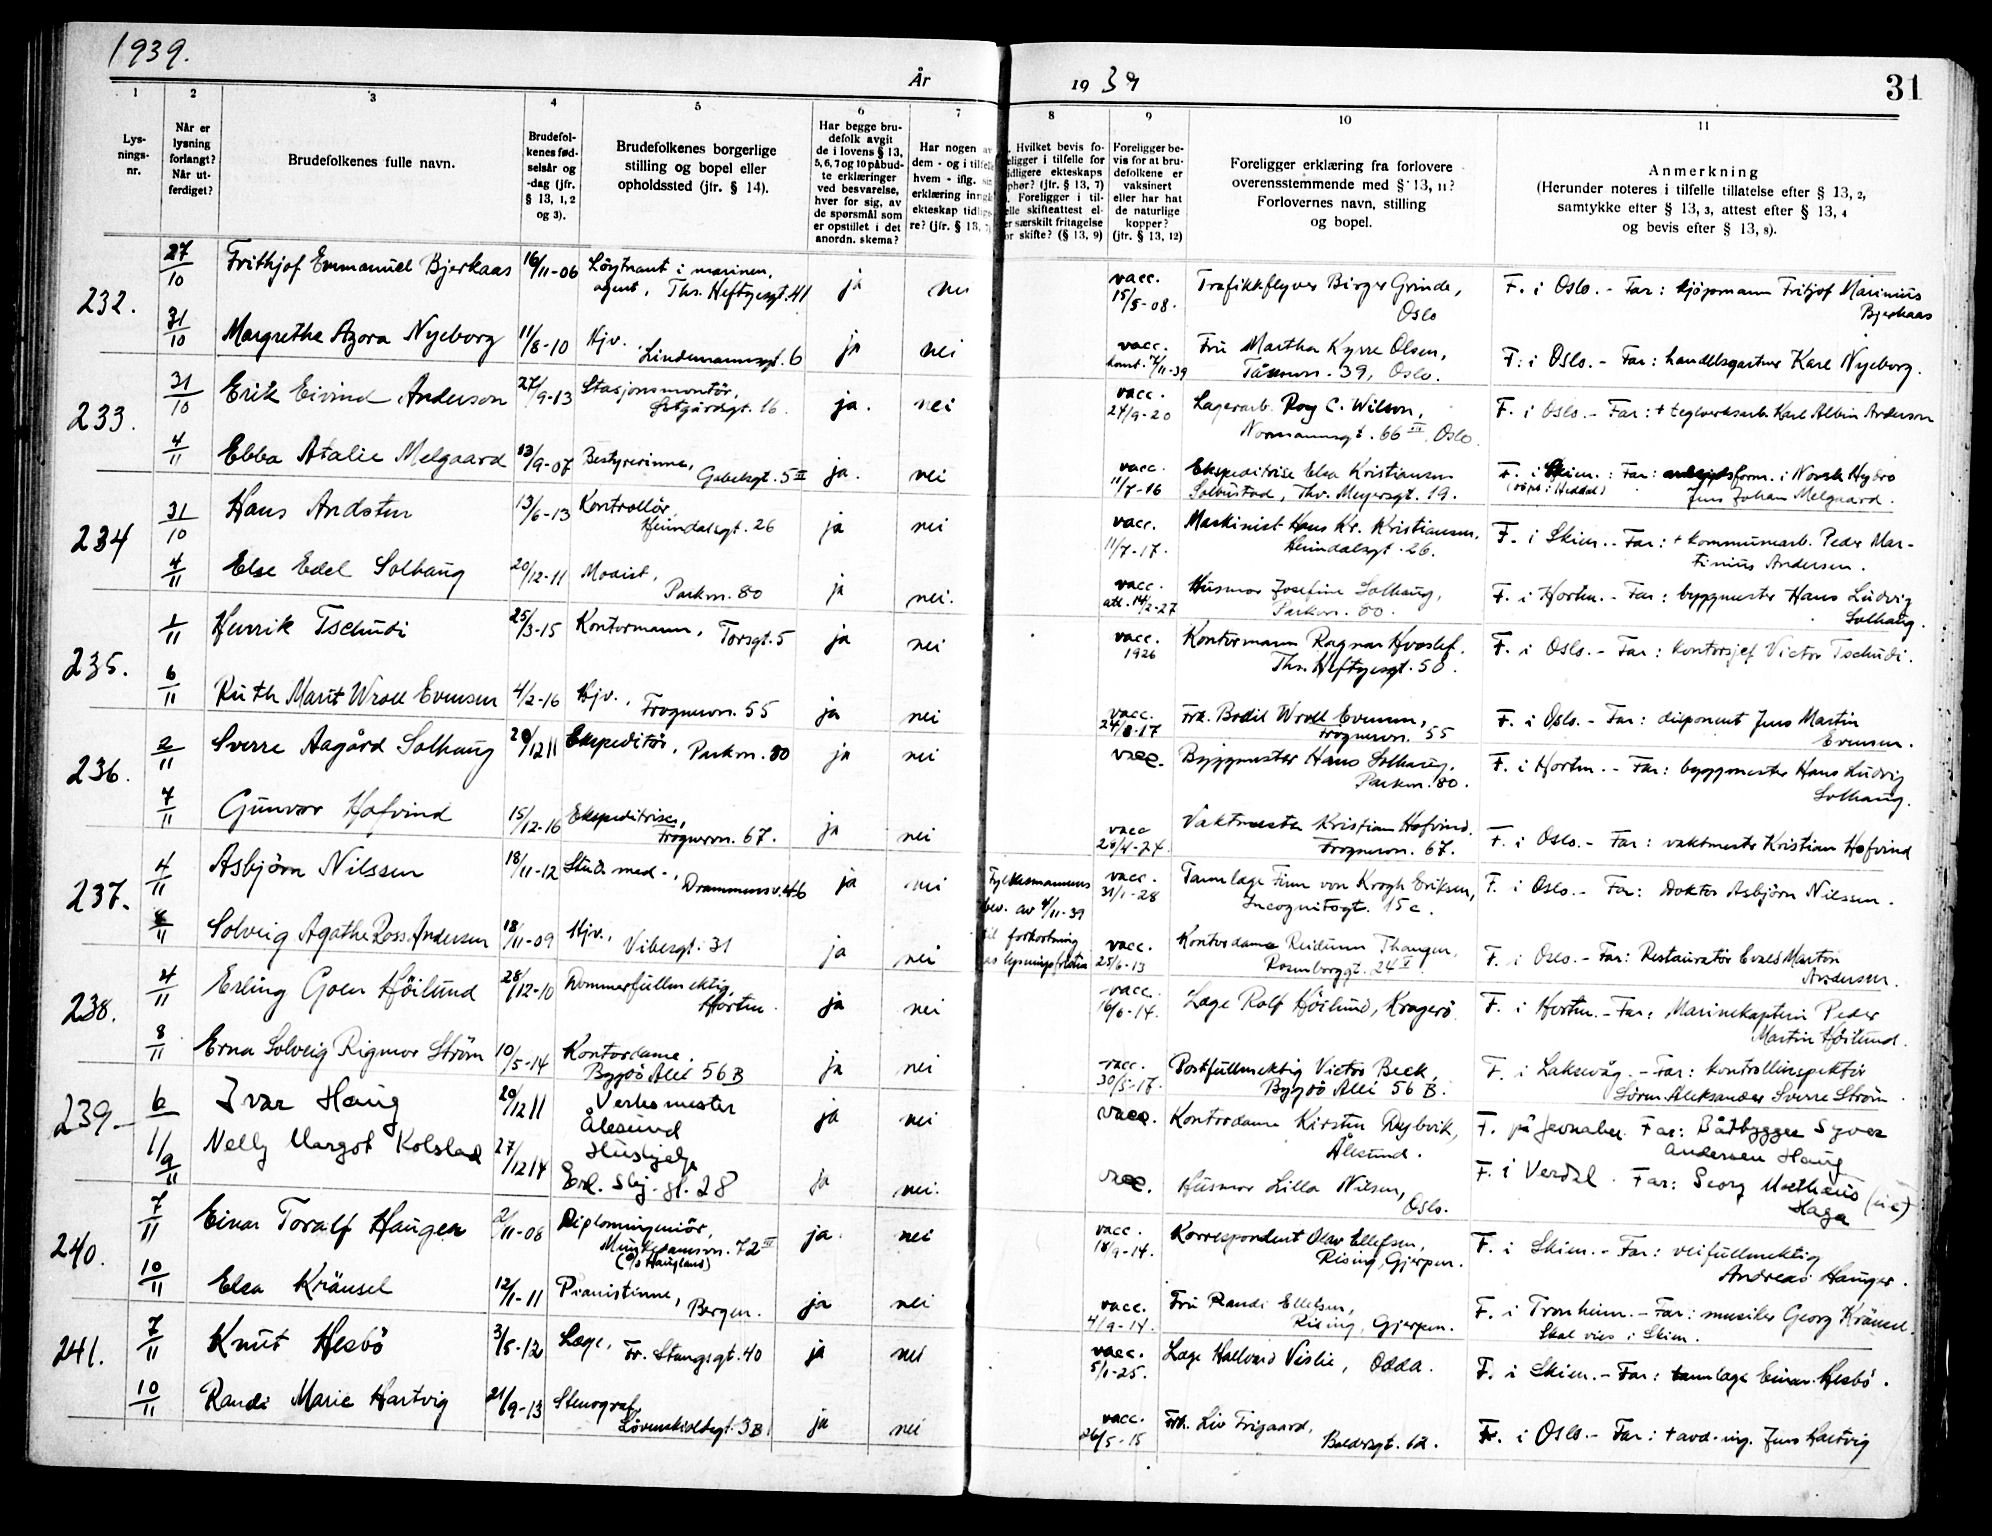 1939.
År
19 39
31
1
2
3
4
5
6
7
8
9
10
11
Lys-
nings-
nr.
Når er
lysning
forlangt?
Når ut-
ferdiget?
Brudefolkenes fulle navn.
Brudefol-
kenes fød-
selsår og
-dag (jfr.
§ 13, 1, 2
og 3).
Brudefolkenes borgerlige
stilling og bopel eller
opholdssted (jfr. § 14).
Har begge bru-
defolk avgit
de i lovens § 13,
5, 6, 7 og 10 påbud-
te erklæringer
ved besvarelse,
hver for sig, av
de spørsmål som
er opstillet i det
anordn. skema?
Har nogen av
dem - og i tilfelle
hvem - iflg. sin
erklæring inngått
ekteskap tidlige-
re? (jfr. § 13, 7)
Hvilket bevis fo-
religger i tilfelle for
tidligere ekteskaps
ophør? (jfr. § 13, 7)
Foreligger i til-
felle skifteattest el-
ler særskilt fritagelse
for skifte? (§ 13, 9)
Foreligger be-
vis for at bru-
defolkene er
vaksinert
eller har hat
de naturlige
kopper?
(jfr. § 13, 12)
Foreligger erklæring fra forlovere
overensstemmende med § 13, 11?
Forlovernes navn, stilling
og bopel.
Anmerkning
(Herunder noteres i tilfelle tillatelse efter § 13, 2,
samtykke efter § 13, 3, attest efter § 13, 4
og bevis efter § 13, 8).
232.
27/10 Frithjof Emmanuel Bjerkaas 16/11-06 Løytnant i marinen,
agent, Ths. Heftyesgt. 41 ja nei
vacc.
15/5-08.
Trafikkflyver Birger Grinde,
Oslo
F. i Oslo. - Far: kjøpmann Fritjof Marinius
Bjerkaas
31/10 Margrethe Azora Nyeborg 11/8-10 Hjv.
Lindemannsgt. 6 ja nei
vacc.
7/11-39
Fru Martha Kyrre Olsen,
39, Oslo.
F. i Oslo. - Far: handelsgartner Karl Nyeborg.
233.
31/10 Erik Eivind Anderson 27/9-13 Stasjonsmontør,
16. ja. nei
vacc.
24/9-20
Lagerarb. Roy C. Wilson,
Normannsgt. 66 III, Oslo.
F. i Oslo. - Far: + teglverksarb. Karl Albin Anderson
4/11 Ebba Atalie Melgaard 13/9-07 Bestyrerinne,
Gabelsgt. 5 II ja. nei
vacc.
11/7-16
Ekspeditrise Elsa Kristiansen
Solbustad, Thv. Meyersgt. 19.
F. i Skien. : Far: arbeidsform. i Norsk Hydro
Jens Johan Melgaard.
234
31/10 Hans Andsten 13/6-13 Kontrollør,
Heimdalsgt. 26 ja nei
vacc.
11/7-17.
Maskinist Hans Kr. Kristiansen,
Heimdalsgt. 26.
F. i Skien. - Far: + kommunearb. Peder Mar-
tinius Andersen.
4/11 Else Edel Solhaug 20/12-11 Modist,
Parkvn. 80 ja nei.
vacc.
att. 14/2-27
Husmor Josefine Solhaug,
Parkvn. 80.
F. i Horten. - Far: byggmester Hans Ludvig
Solhaug.
235.
1/11 Henrik Tschudi 25/3-15 Kontormann, Torsgt. 5 ja nei
vacc.
1926
Kontormann Ragnar Hvoslef.
Ths. Heftyesgt. 50.
F. i Oslo. - Far: kontorsjef Victor Tschudi.
6/11 Ruth Marit Wroll Evensen 4/2-16 Hjv.,
Frognervn. 55 ja nei
vacc.
24/8-17
Frk. Bodil Wroll Evensen,
Frognervn. 55
F. i Oslo. - Far: disponent Jens Martin
Evensen.
236.
2/11 Sverre Aagård Solhaug 20/12 11 Ekspeditør, Parkvn. 80 ja nei
vacc.
Byggmester Hans Solhaug,
Parkvn. 80.
F. i Horten. - Far: byggmester Hans Ludvig
Solhaug.
7/11 Gunvor Hofvind 15/12-16 Ekspeditrise,
Frognervn. 67. ja nei
vacc
28/4-24
Vaktmester Kristian Hofvind.
Frognervn. 67.
F. i Oslo. - Far: vaktmester Kristian Hofvind
237.
4/11 Asbjørn Nilssen 18/11-12 Stud. med.,
Drammensv. 46 ja nei
Fylkesmannens
bev. av 4/11-39
til forkortning
av lysningsfristen
vacc.
31/1-28
Tannlæge Finn von Krogh Eriksen,
Incognitogt. 15 c.
F. i Oslo. - Far: Doktor Asbjørn Nilssen.
8/11 Solveig Agathe Ross. Andersen 18/11-09 Hjv.,
Vibesgt. 31 ja nei
vacc.
25/6-13
Kontordame Reidunn Thangen,
Rosenborggt. 24 V
F. i Oslo. - Far: Restauratør Evald Martin
Andersen.
238.
4/11 Erling Goen Høilund 28/12-10 Dommerfullmektig,
Horten. ja nei
vacc.
16/6-14.
Læge Rolf Høilund, Kragerø
F. i Horten. - Far: Marinekaptein Peder
Martin Høilund.
8/11 Erna Solveig Rigmor Strøm 10/5-14 Kontordame,
Bygdø Allé 56 B ja nei
vacc.
30/5-17.
Postfullmektig Victor Beck,
Bygdø Allé 56 B.
F. i Laksevåg. - Far: kontrollinspektør
Søren Aleksander Sverre Strøm.
239.
6/11 Ivar Haug 20/12 11 Verksmester
Ålesund ja nei
vacc.
Kontordame Kirsten Dybvik,
Ålesund.
F. på Jevnaker. Far: Båtbygger Syver
Andersen Haug
9/11 Nelly Margot Kolstad 27/12 14 Hushjelp
Erl. Skj. gt. 28 ja nei.
vacc.
Husmor Lilla Nilsen,
Oslo.
F. i Verdal. Far: Georg Mathæus (sic)
Haga
240.
7/11 Einar Toralf Haugen 2/11-08 Diplomingeniør,
Munkedamsvn. 72 III
(c/o Haugland) ja. nei
vacc.
18/9-14.
Korrespondent Olav Ellefsen,
Rising, Gjerpen.
F. i Skien. - Far: veifullmektig
Andreas Haugen.
10/11 Elsa Kräusel 12/1-11 Pianistinne,
Bergen. ja nei
vacc.
4/9-14.
Fru Randi Ellefsen,
Rising, Gjerpen.
F. i Tronheim. - Far: musiker Georg Kräusel.
Skal vies i Skien.
241.
7/11 Knut Hesbø 3/5-12 Læge, Fr. Stangsgt. 40 ja nei
vacc.
5/1-25.
Læge Hallvard Vislie, Odda.
F. i Skien. - Far: tannlæge Einar Hesbø.
10/11 Randi Marie Hartvig 21/9-13 Stenograf,
Løvenskioldsgt. 3 B ja nei
vacc.
26/5-15
Frk. Liv Frigaard,
Baldersgt. 62.
F. i Oslo. - Far: + avd.ing. Jens Hartvig